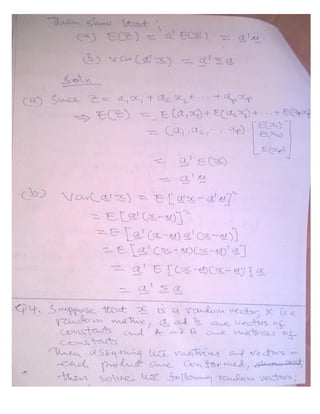 Then show that:
(a) E(Z) = a' E(X) = a'μ
(b) var(a'x) = a'Σa
Soln
(a) Since Z = a₁x₁ + a₂x₂ + ... + aₚxₚ
⇒ E(Z) = E(a₁x₁) + E(a₂x₂) + ... + E(aₚxₚ)
= (a₁, a₂, ... aₚ) [E(x₁) E(x₂) ⋮ E(xₚ)]
= a' E(x)
= a'μ
(b) Var(a'x) = E[a'x - a'μ]²
= E[a'(x-μ)]²
= E[a'(x-μ) a'(x-μ)]
= E[a'(x-μ)(x-μ)'a]
= a' E{(x-μ)(x-μ)'}a
= a'Σa
Q4. Suppose that x is a random vector, X is a
random matrix, a and b are vectors of
constants and A and B are matrices of
constants.
Then assuming the matrices and vectors in
each product are conformed,
then solve the following random vectors: